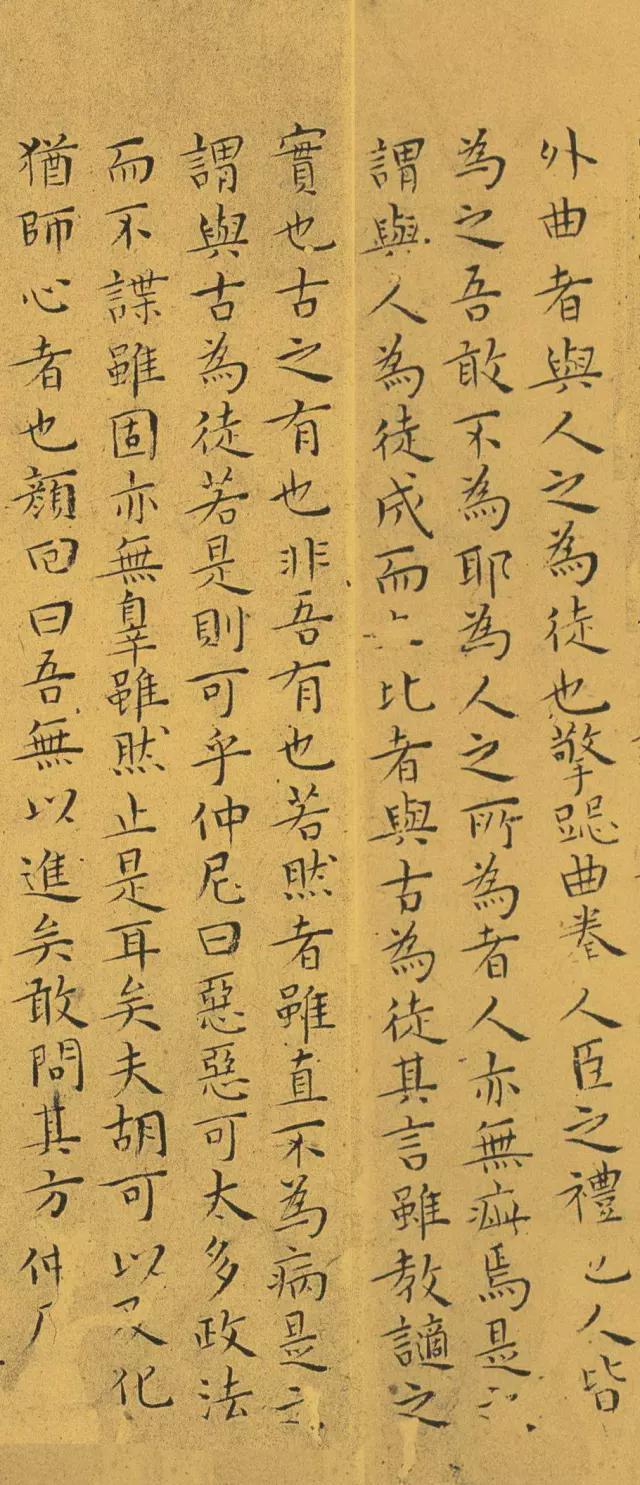 外曲者與人之為徒也擎跽曲拳人臣之禮也人皆
為之吾敢不為耶為人之所為者人亦無疵焉是
謂與人為徒成而比者與古為徒其言雖教謫之
實也古之有也非吾有也若然者雖直不為病是
謂與古為徒若是則可乎仲尼曰惡惡可太多政法
而不諜雖固亦無辠雖然止是耳矣夫胡可以及化
猶師心者也顏回曰吾無以進矣敢問其方仲